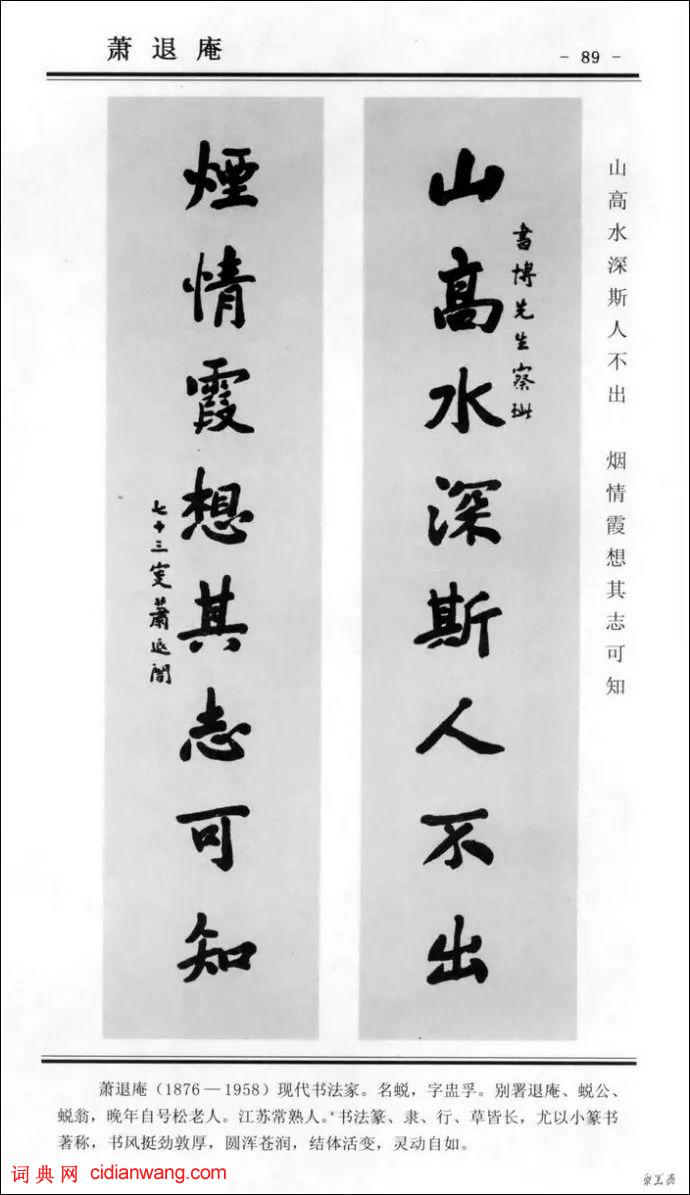 萧退庵
- 89 -
山高水深斯人不出　烟情霞想其志可知
山高水深斯人不出
書博先生察
煙情霞想其志可知
七十三叟蕭退闇
萧退庵（1876—1958）现代书法家。名蜕，字盅孚。别署退庵、蜕公、
蜕翁，晚年自号松老人。江苏常熟人。书法篆、隶、行、草皆长，尤以小篆书
著称，书风挺劲敦厚，圆浑苍润，结体活变，灵动自如。
词典网 cidianwang.com